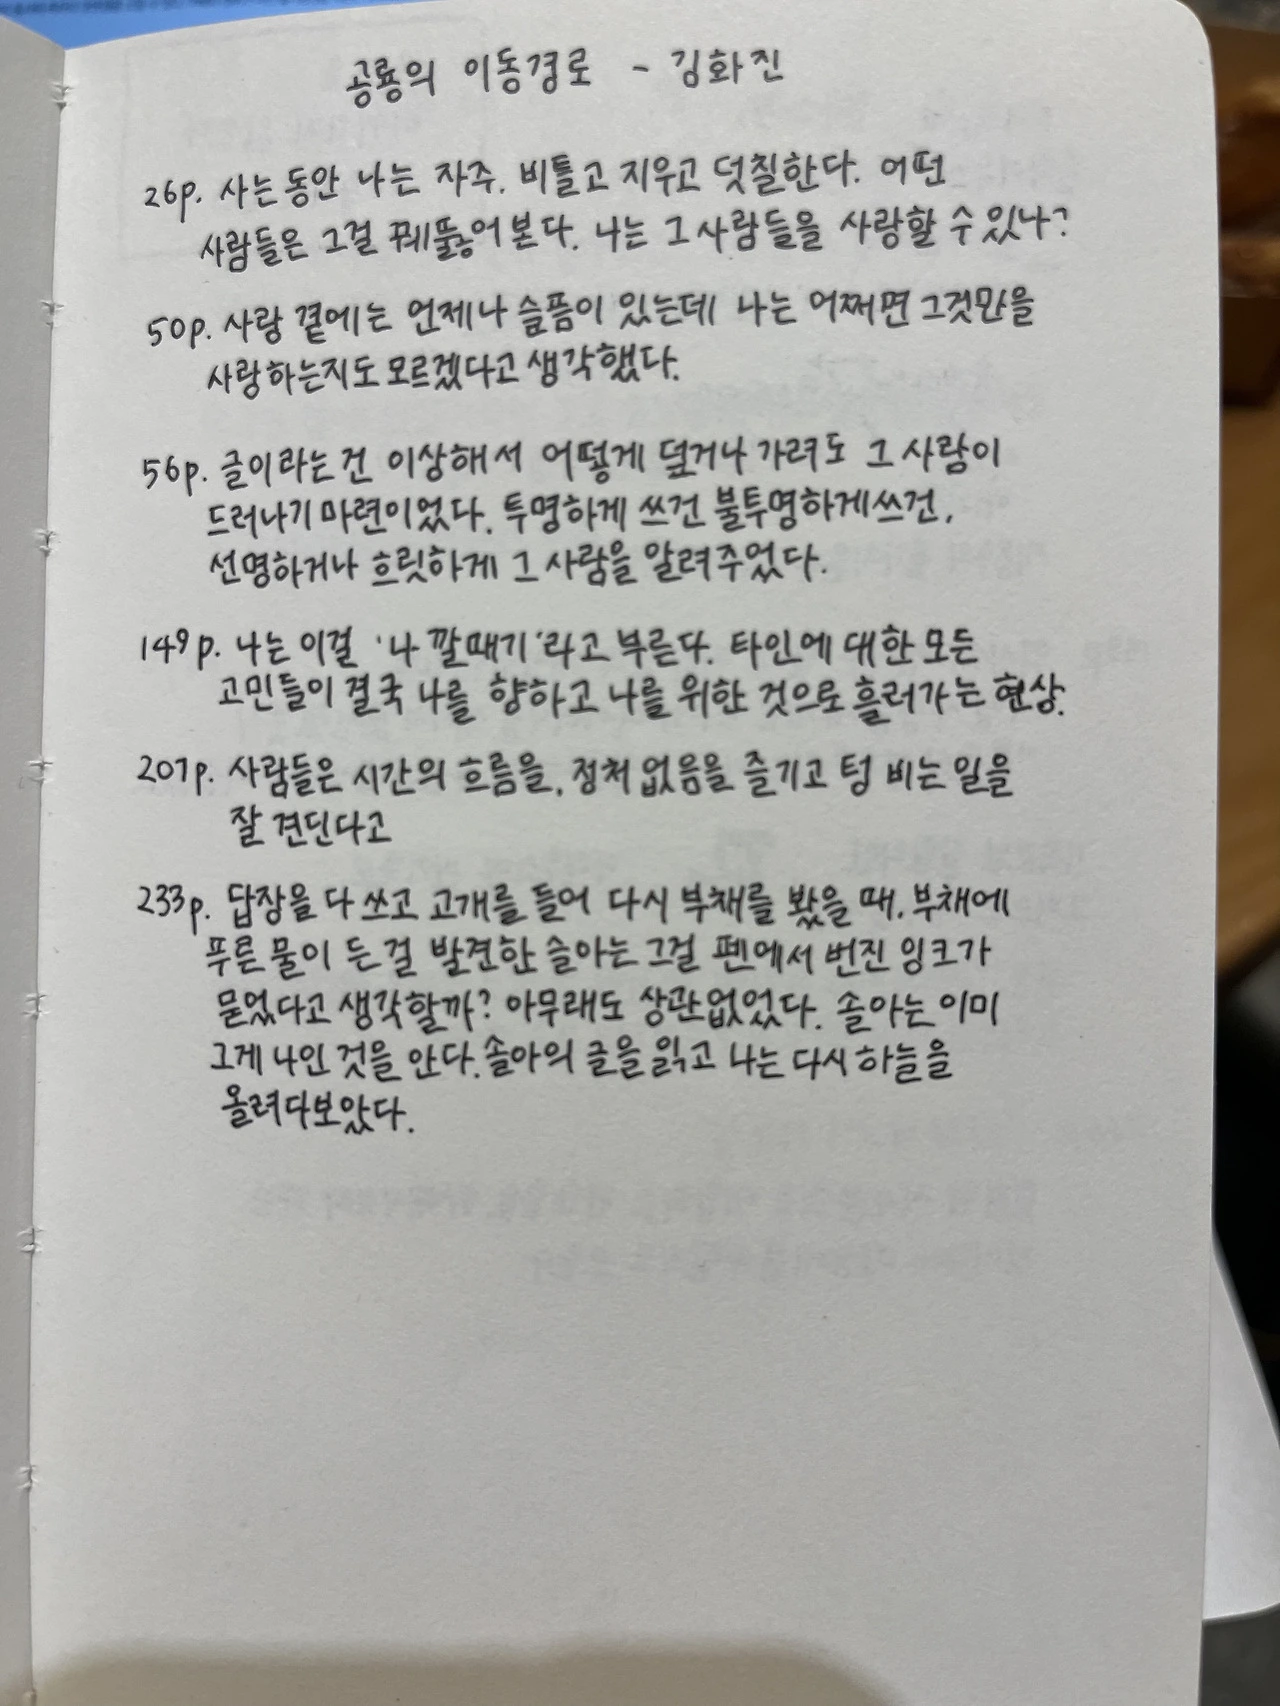 공룡의 이동경로 - 김화진
26p. 사는동안 나는 자주. 비틀고 지우고 덧칠한다. 어떤
사람들은 그걸 꿰뚫어 본다. 나는 그 사람들을 사랑할 수 있나?
50p. 사랑 곁에는 언제나 슬픔이 있는데 나는 어쩌면 그것만을
사랑하는지도 모르겠다고 생각했다.
56p. 글이라는 건 이상해서 어떻게 덮거나 가려도 그 사람이
드러나기 마련이었다. 투명하게 쓰건 불투명하게쓰건,
선명하거나 흐릿하게 그 사람을 알려주었다.
149p. 나는 이걸 '나 깔때기'라고 부른다. 타인에 대한 모든
고민들이 결국 나를 향하고 나를 위한 것으로 흘러가는 현상.
207p. 사람들은 시간의 흐름을, 정처 없음을 즐기고 텅 비는 일을
잘 견딘다고
233p. 답장을 다 쓰고 고개를 들어 다시 부채를 봤을 때, 부채에
푸른 물이 든 걸 발견한 솔아는 그걸 펜에서 번진 잉크가
묻었다고 생각할까? 아무래도 상관없었다. 솔아는 이미
그게 나인 것을 안다. 솔아의 글을 읽고 나는 다시 하늘을
올려다보았다.